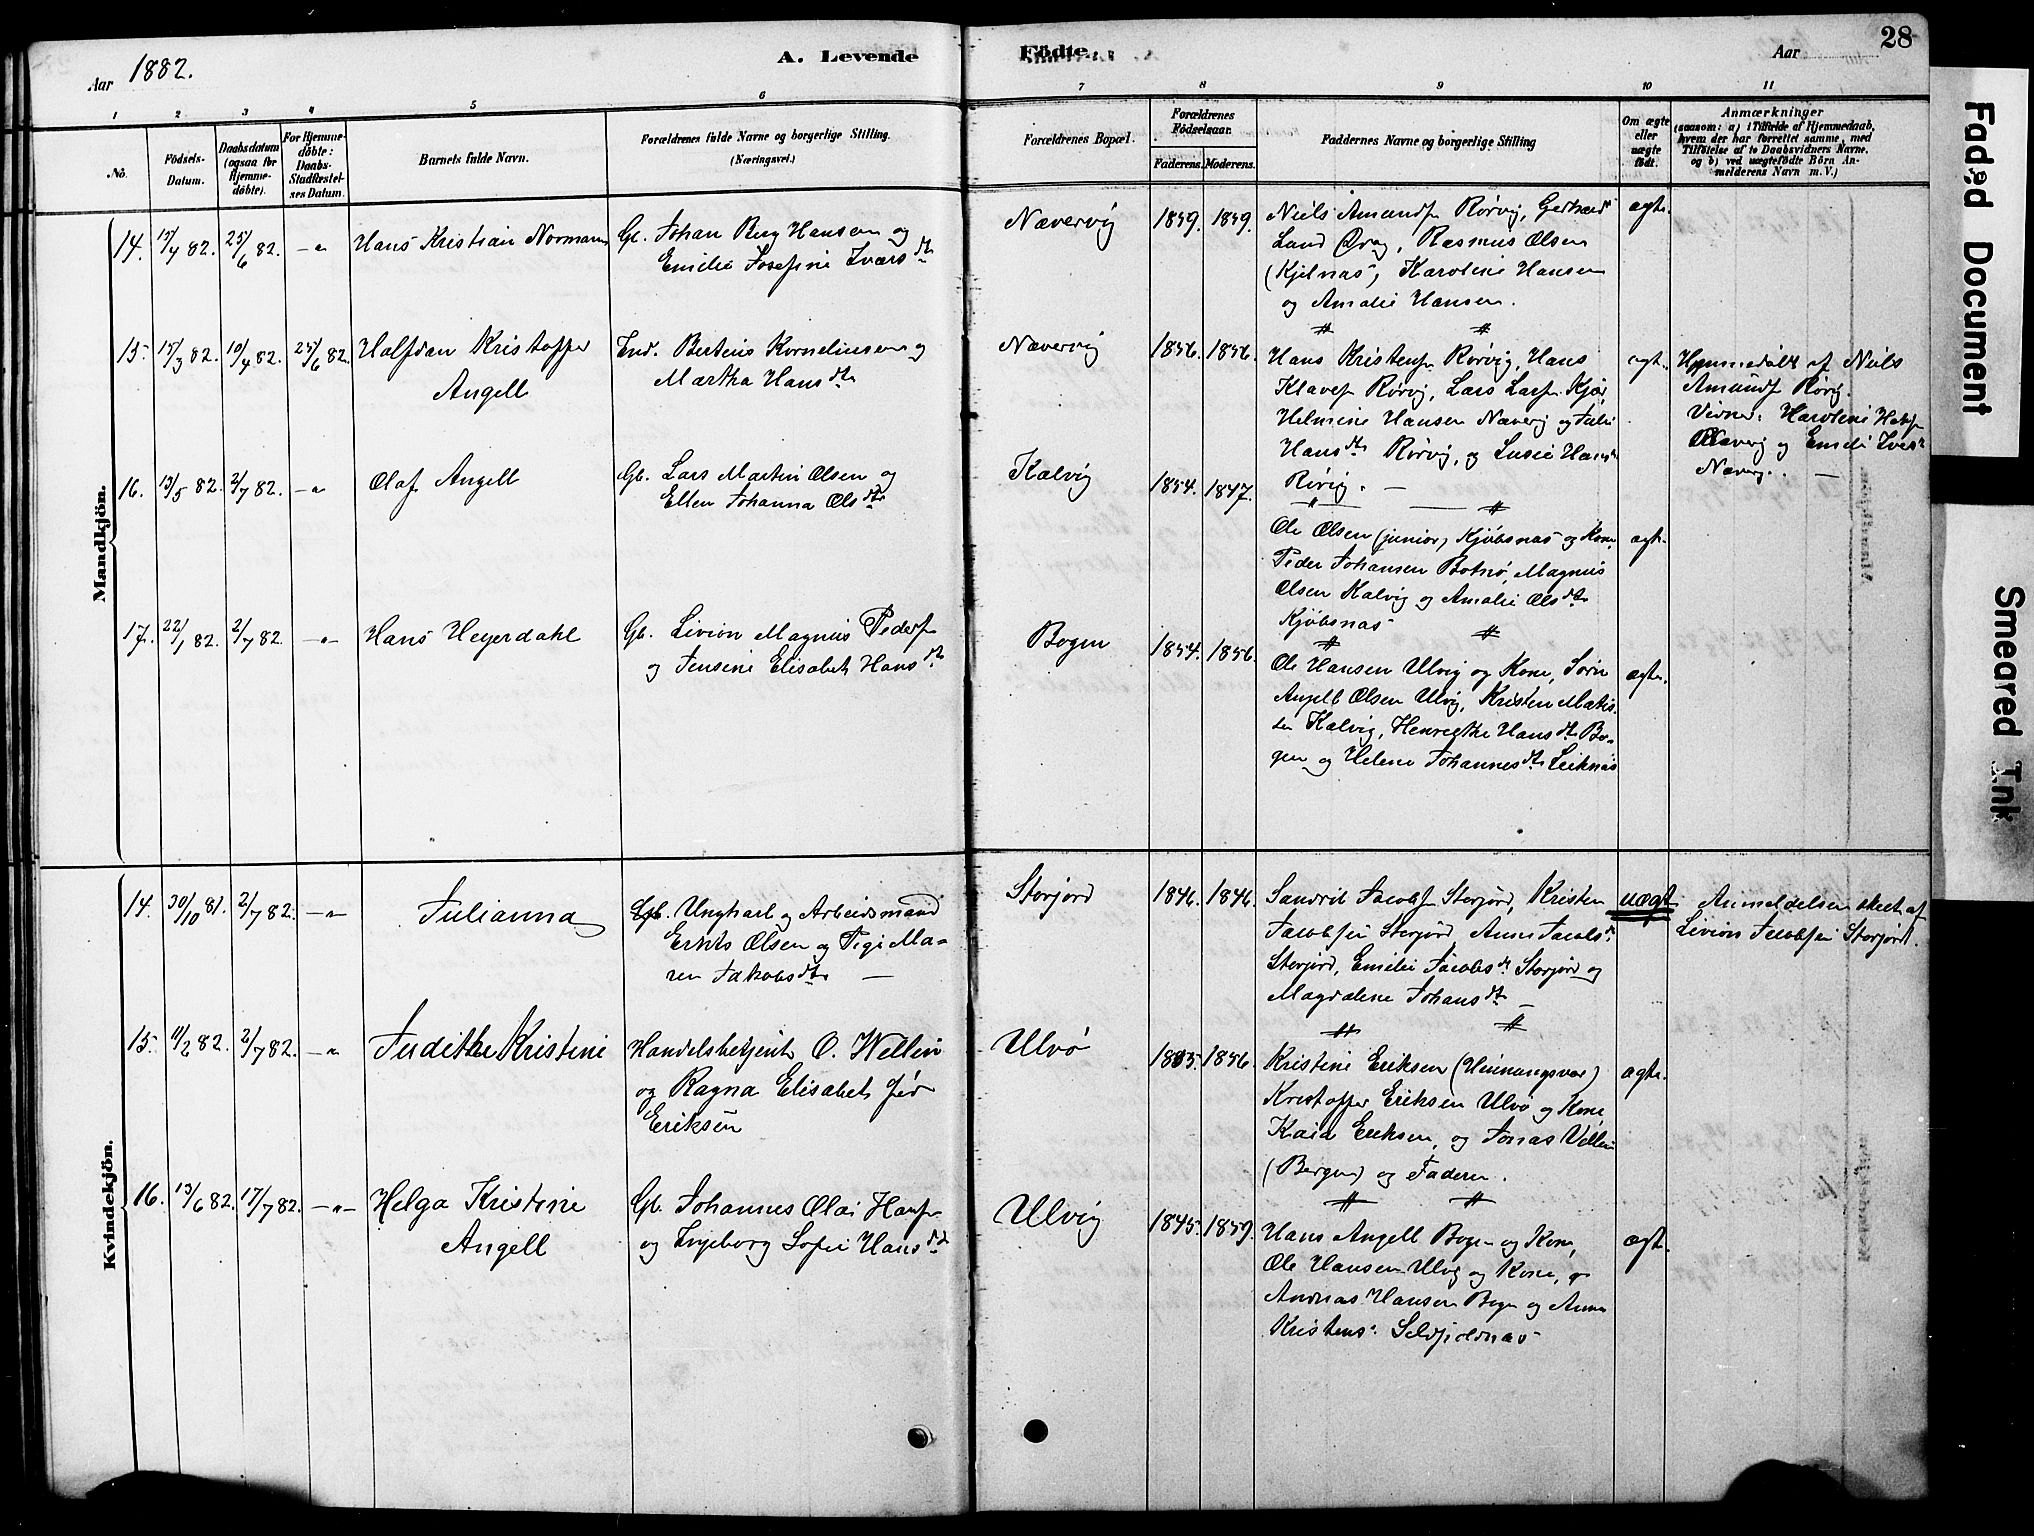 Aar 1882.
A. Levende
Födte.
Aar
28
1
2
3
4
5
6
7
8
9
10
11
No.
Födsels-
Datum.
Daabsdatum
(ogsaa for
Hjemme-
döbte).
For Hjemme-
döbte:
Daabs-
Stadfæstel-
ses Datum.
Barnets fulde Navn.
Forældrenes fulde Navne og borgerlige Stilling.
(Næringsvei.)
Forældrenes Bopæl.
Forældrenes
Födselsaar.
Faderens.
Moderens.
Faddernes Navne og borgerlige Stilling
Om ægte
eller
uægte
födt.
Anmærkninger
(saasom: a) i Tilfælde af Hjemmedaab,
hvem der har forrettet samme, med
Tilföielse af to Daabsvidners Navne,
og b) ved uægtefödte Börn An-
melderens Navn m. V.)
Mandkjön.
14. 17/4 82. 25/6 82. -"- Hans Kristian Normann
Gb. Johan Berg Hansen og
Emilie Josefine Ivers dtr
Nævervig 1859. 1859.
Niels Amundsn Rørvig, Gerhard
Lund Ørag, Rasmus Olsen
(Kjelnæs), Karoline Hansen
og Amalie Hansen.
ægte.
15. 15/3 82. 10/4 82. 25/6 82. Halfdan Kristoffer
Angell
Ind. Bertens Korneliussen og
Martha Hans dtr
Nævervig 1856. 1856.
Hans Kristensn Rørvig, Hans
Klavesn Rørvig, Lars Larsn Kjær,
Helmine Hansen Næverv og Julie
Hans dtr Rørvig, og Lusie Hansdtr
Rørvig. —
ægt.
Hjemmedøbt af Niels
Amundsn Rørvig.
Vidner: Karoline
Næverv og Emilie Ivers
Næverv. —
16. 13/5 82. 2/7 82. -"- Olaf Angell
Gb. Lars Martin Olsen og
Ellen Johanna Ols dtr
Kalvig 1854. 1847.
Ole Olsen (junior) Kjøbsnæs og Kone,
Peder Johansen Botnø, Magnus
Olsen Kalvig og Amalie Ols dtr
Kjøbsnæs
ægt.
17. 22/1 82. 2/7 82. -"- Hans Heyerdahl
Gb. Livion Magnus Pedersn
og Jensine Elisabet Hans dtr
Bogen 1854. 1856.
Ole Hansen Ulvig og Kone, Sørn
Angell Olsen Ulvig, Kristen Mathis-
sen Kalvig, Henriette Hans dtr Bo-
gen og Helene Johannes dtr Leiknæs
ægte.
Kvindekjön.
14. 30/10 81. 2/7 82. -"- Julianna
Ungkarl og Arbeidsmand
Olsen og Pige Ma-
ren Jakobs dtr —
Storjord 1846. 1846.
Sandrik Jacobsn Storjord, Kristen
Jacobsen Storjord, Anne Jacobs dtr
Storjord, Emilie Jacobs dtr Storjord og
Magdalene Johans dtr —
uægt.
Anmeldelsen skeet af
Livion Jacobsen Storjord.
15. 11/2 82. 2/7 82. -"- Judithe Kristine
Handelsbetjent O. Wellin
og Ragna Elisabet fød
Eriksen
Ulvø 1856.
Kristine Eriksen
Kristoffer Eriksen Ulvø og Kone
Kaia Eriksen, og Jonas Vellin
(Bergen) og Faderen.
ægte.
16. 13/6 82. 17/7 82. -"- Helga Kristine
Angell
Gb. Johannes Olai Hansn
og Ingeborg Sofie Hans dtr
Ulvig 1845. 1859.
Hans Angell Bogen og Kone,
Ole Hansen Ulvig og Kone, og
Andreas Hansen Bogen og Anne
Kristens.
ægt.
Faded Document
Smeared Ink